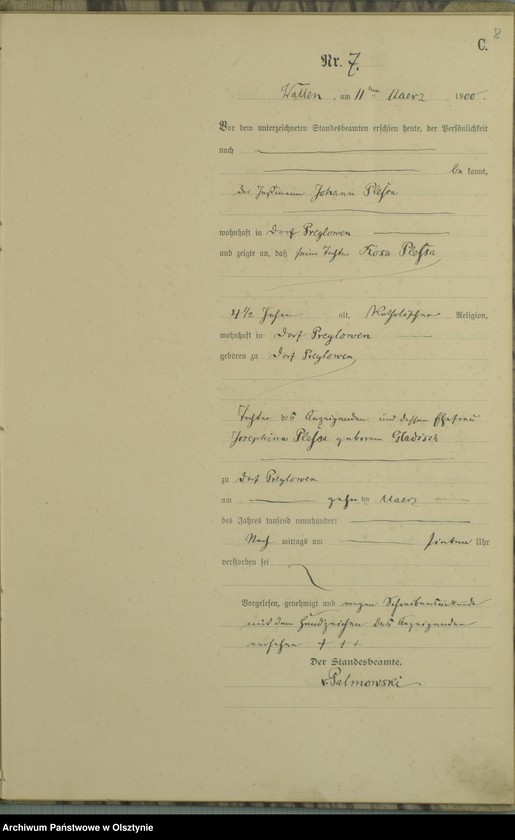 8
C.
Nr. 7.
Wallen, am 11ten Maerz 1900.
Vor dem unterzeichneten Standesbeamten erschien heute, der Persönlichkeit
nach
be kannt,
der Johann Plessa
wohnhaft in Dorf Preylowen
und zeigte an, daß seine Tochter Rosa Plessa
4 1/2 Jahre alt, Katholischer Religion,
wohnhaft in Dorf Preylowen
geboren zu Dorf Preylowen,
Tochter des Anzeigenden und dessen Ehefrau
Josephina Plessa geborene Gladisch
zu Dorf Preylowen
am zehn ten Maerz
des Jahres tausend neunhundert
Nach mittags um sieben Uhr
verstorben sei
Vorgelesen, genehmigt und wegen Schreibensunkunde
mit dem Handzeichen des Anzeigenden
versehen + + +
Der Standesbeamte.
v. Palmowski
Archiwum Państwowe w Olsztynie